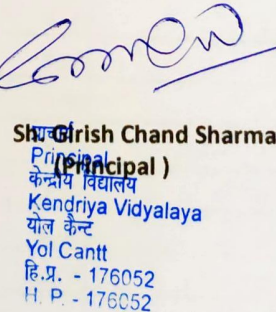 Sh. Girish Chand Sharma
प्राचार्य
Principal
(Principal )
केन्द्रीय विद्यालय
Kendriya Vidyalaya
योल कैन्ट
Yol Cantt
हि.प्र. - 176052
H. P. - 176052